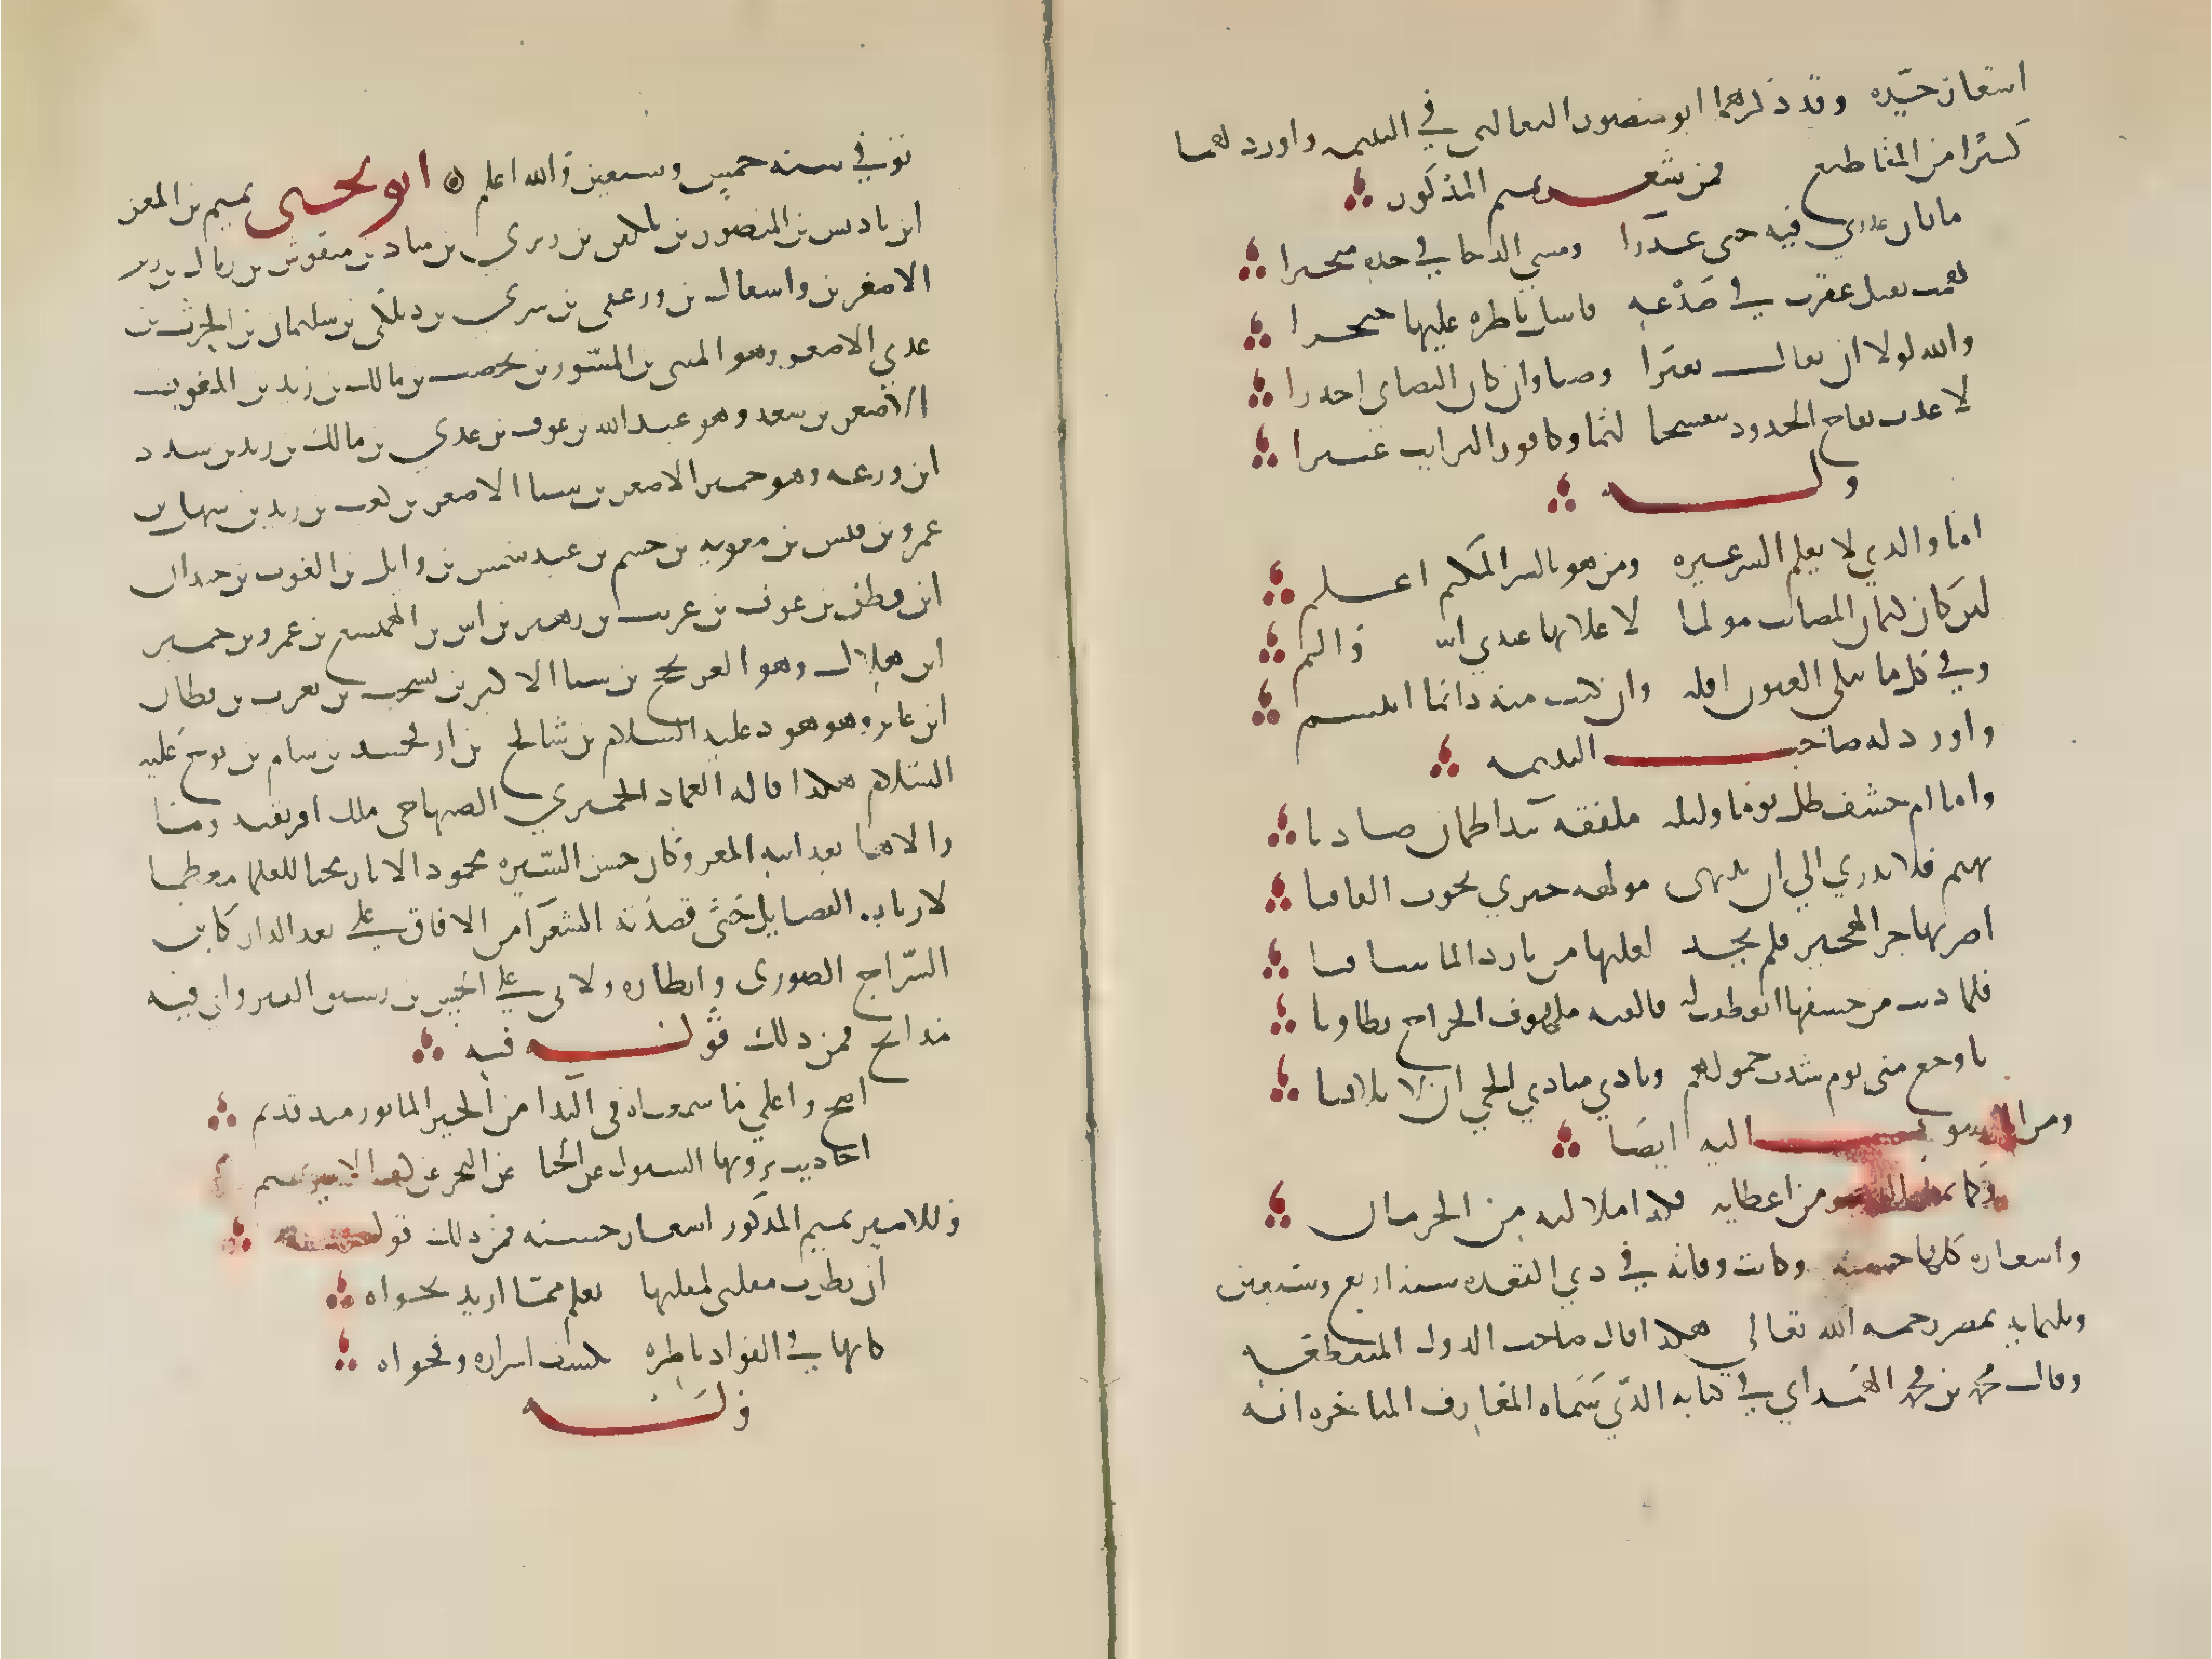 اشعار جيده وقد ذكرهما ابو منصور الثعالبي في اليتيمه واورد لهما
كثيرا من المقاطيع فمن شعر تميم المذكور
ما بان عذري فيه حتى عذرا ومشى الدجا في خده فتحيرا
همت تقبله عقارب صدغه فاستل ناظره عليها خنجرا
والله لولا ان يقال تغيرا وصبا وان كان التصابي اجدرا
لاعدت تفاح الخدود بنفسجا لثما وكافور الترايب عنبرا
وله
اما والذي لا يعلم السر غيره ومن هو بالسر المكتم اعلم
لين كان كتمان المصايب مولما لاعلانها عندي اشد والم
وفي كل ما يبكي العيون اقله وان كنت منه دايما اتبسم
واورد له صاحب اليتيمه
وما ام خشف ظل يوما وليله ببلقعه بيدا ظمان صاديا
تهيم فلا تدري الي اين تنتهي مولهه حيري تجوب الفيافيا
اضر بها حر الهجير فلم تجد لغلتها من بارد الما شافيا
فلما دنت من خشفها انعطفت له فالفته ملهوف الجوانح طاويا
باوجع مني يوم شدت حمولهم ونادي منادي الحي ان لا تلاقيا
ومن المنسوب اليه ايضا
وكما يمل الدهر من اعطايه فكذا ملالته من الحرمان
واشعاره كلها حسنه وكانت وفاته في ذي القعده سنه اربع وسبعين
وثلثمايه بمصر رحمه الله تعالي هكذا قال صاحب الدول المنقطعه
وقال محمد بن محمد الهمداني في كتابه الذي سماه المعارف المتاخره انه
توفي سنه خمس وسبعين والله اعلم ابو يحيى تميم بن المعز
ابن باديس بن المنصور بن بلكين بن زيري بن مناد بن منقوش بن زناك بن زيد
الاصغر بن واشفال بن وزغفي بن سري بن وتلكي بن سليمان بن الحرث بن
عدي الاصغر وهو المثنى بن المسور بن يحصب بن مالك بن زيد بن الغوث
الاصغر بن سعد وهو عبد الله بن عوف بن عدي بن مالك بن زيد بن سدد
ابن زرعه وهو حمير الاصغر بن سبا الاصغر بن كعب بن زيد بن سهل بن
عمرو بن قيس بن معويه بن جشم بن عبد شمس بن وايل بن الغوث بن حيدان
ابن قطن بن عوف بن عريب بن زهير بن ايمن بن الهميسع بن عمرو بن حمير
ابن هلال وهو العرنجج بن سبا الاكبر بن يشجب بن يعرب بن قحطان
ابن عابر وهو هود عليه السلام بن شالخ بن ارفخشد بن سام بن نوح عليه
السلام هكذا قاله العماد الحميري الصنهاجي ملك افريقيه وما
والاها بعد ابيه المعز وكان حسن السيره محمود الاثار محبا للعلما معظما
لارباب الفضايل حتى قصدته الشعرا من الافاق على بعد الدار كابن
السراج الصوري وانظاره ولابي علي الحسن بن رشيق القيرواني فيه
مدايح فمن ذلك قوله فيه
اصح واعلي ما سمعناه في الندا من الخبر الماثور منذ قديم
احاديث ترويها السيول عن الحيا عن البحر عن كف الامير تميم
وللامير تميم المذكور اشعار حسنه فمن ذلك قوله
ان نظرت مقلتي لمقلتها تعلم مما اريد نجواه
كانها في الفواد ناظره تكشف اسراره وفحواه
وله